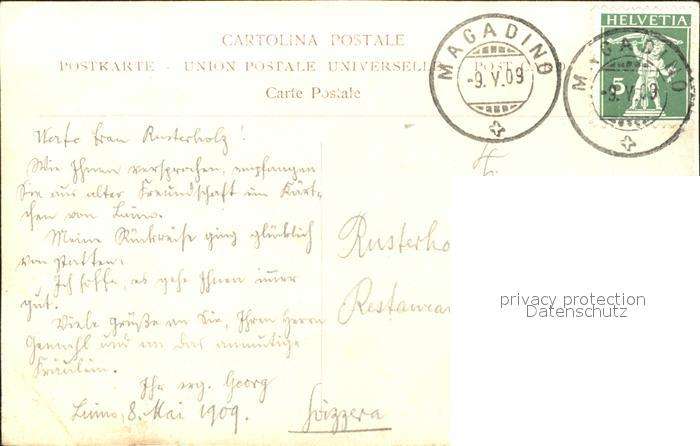 CARTOLINA POSTALE
POSTKARTE - UNION POSTALE UNIVERSELLE - POSTCARD
Carte Postale
MAGADINO
-9.V.09
HELVETIA
5
MAGADINO
-9.V.09
Werte Frau Rusterholz!
Wie Ihnen versprochen, empfangen
Sie aus alter Freundschaft ein Kärt-
chen von Luino.
Meine Rückreise ging glücklich
von statten.
Ich hoffe, es gehe Ihnen immer
gut.
Viele Grüße an Sie, Ihren Herrn
Gemahl und an das anmutige
Fräulein.
Ihr erg. Georg
Luino, 8. Mai 1909.
Rusterho
Restauran
Svizzera
privacy protection
Datenschutz